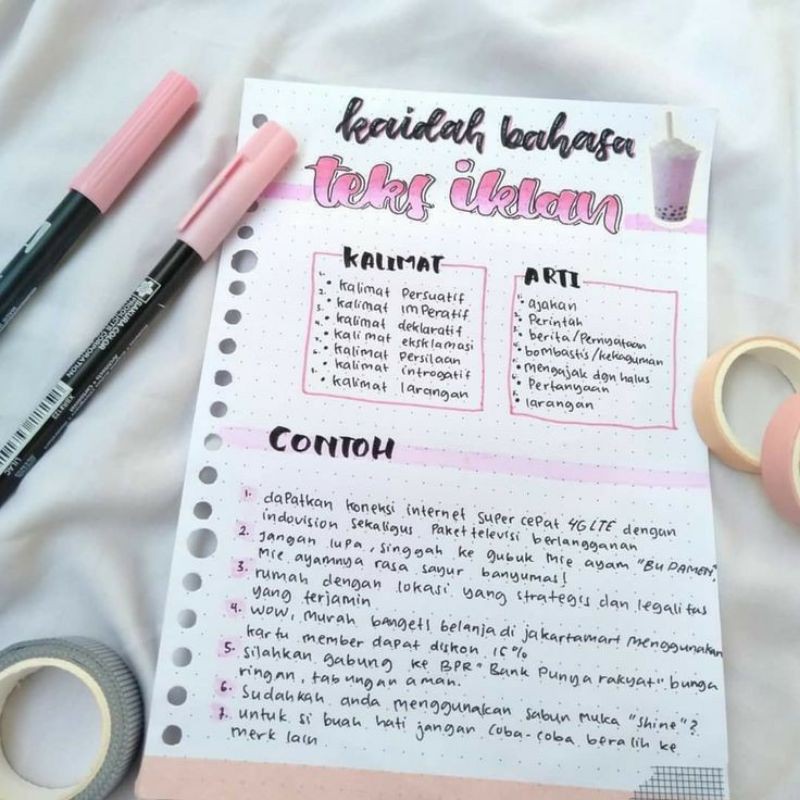 kaidah bahasa
teks iklan
KALIMAT
1. • kalimat Persuatif
2. • kalimat imperatif
3. • kalimat deklaratif
4. • kalimat eksklamasi
5. • kalimat Persilaan
6. • kalimat introgatif
7. • kalimat larangan
ARTI
1. • ajakan
2. • Perintah
3. • berita/Pernyataan
4. • bombastis/kekaguman
5. • mengajak dgn halus
6. • Pertanyaan
7. • larangan
CONTOH
1. dapatkan koneksi internet super cepat 4G LTE dengan
indovision sekaligus Paket televisi berlangganan
2. jangan lupa, singgah ke gubuk mie ayam "BU DAMEN",
mie ayamnya rasa sayur banyumas!
3. rumah dengan lokasi yang strategis dan legalitas
yang terjamin
4. wow, murah banget! belanja di jakartamart menggunakan
kartu member dapat diskon 15%
5. silahkan gabung ke BPR "Bank Punya rakyat" bunga
ringan, tabungan aman.
6. Sudahkah anda menggunakan sabun muka "shine"?
7. untuk si buah hati jangan coba-coba beralih ke
merk lain
SAKURA COLOR
PRODUCTS CORPORATION
LILAC